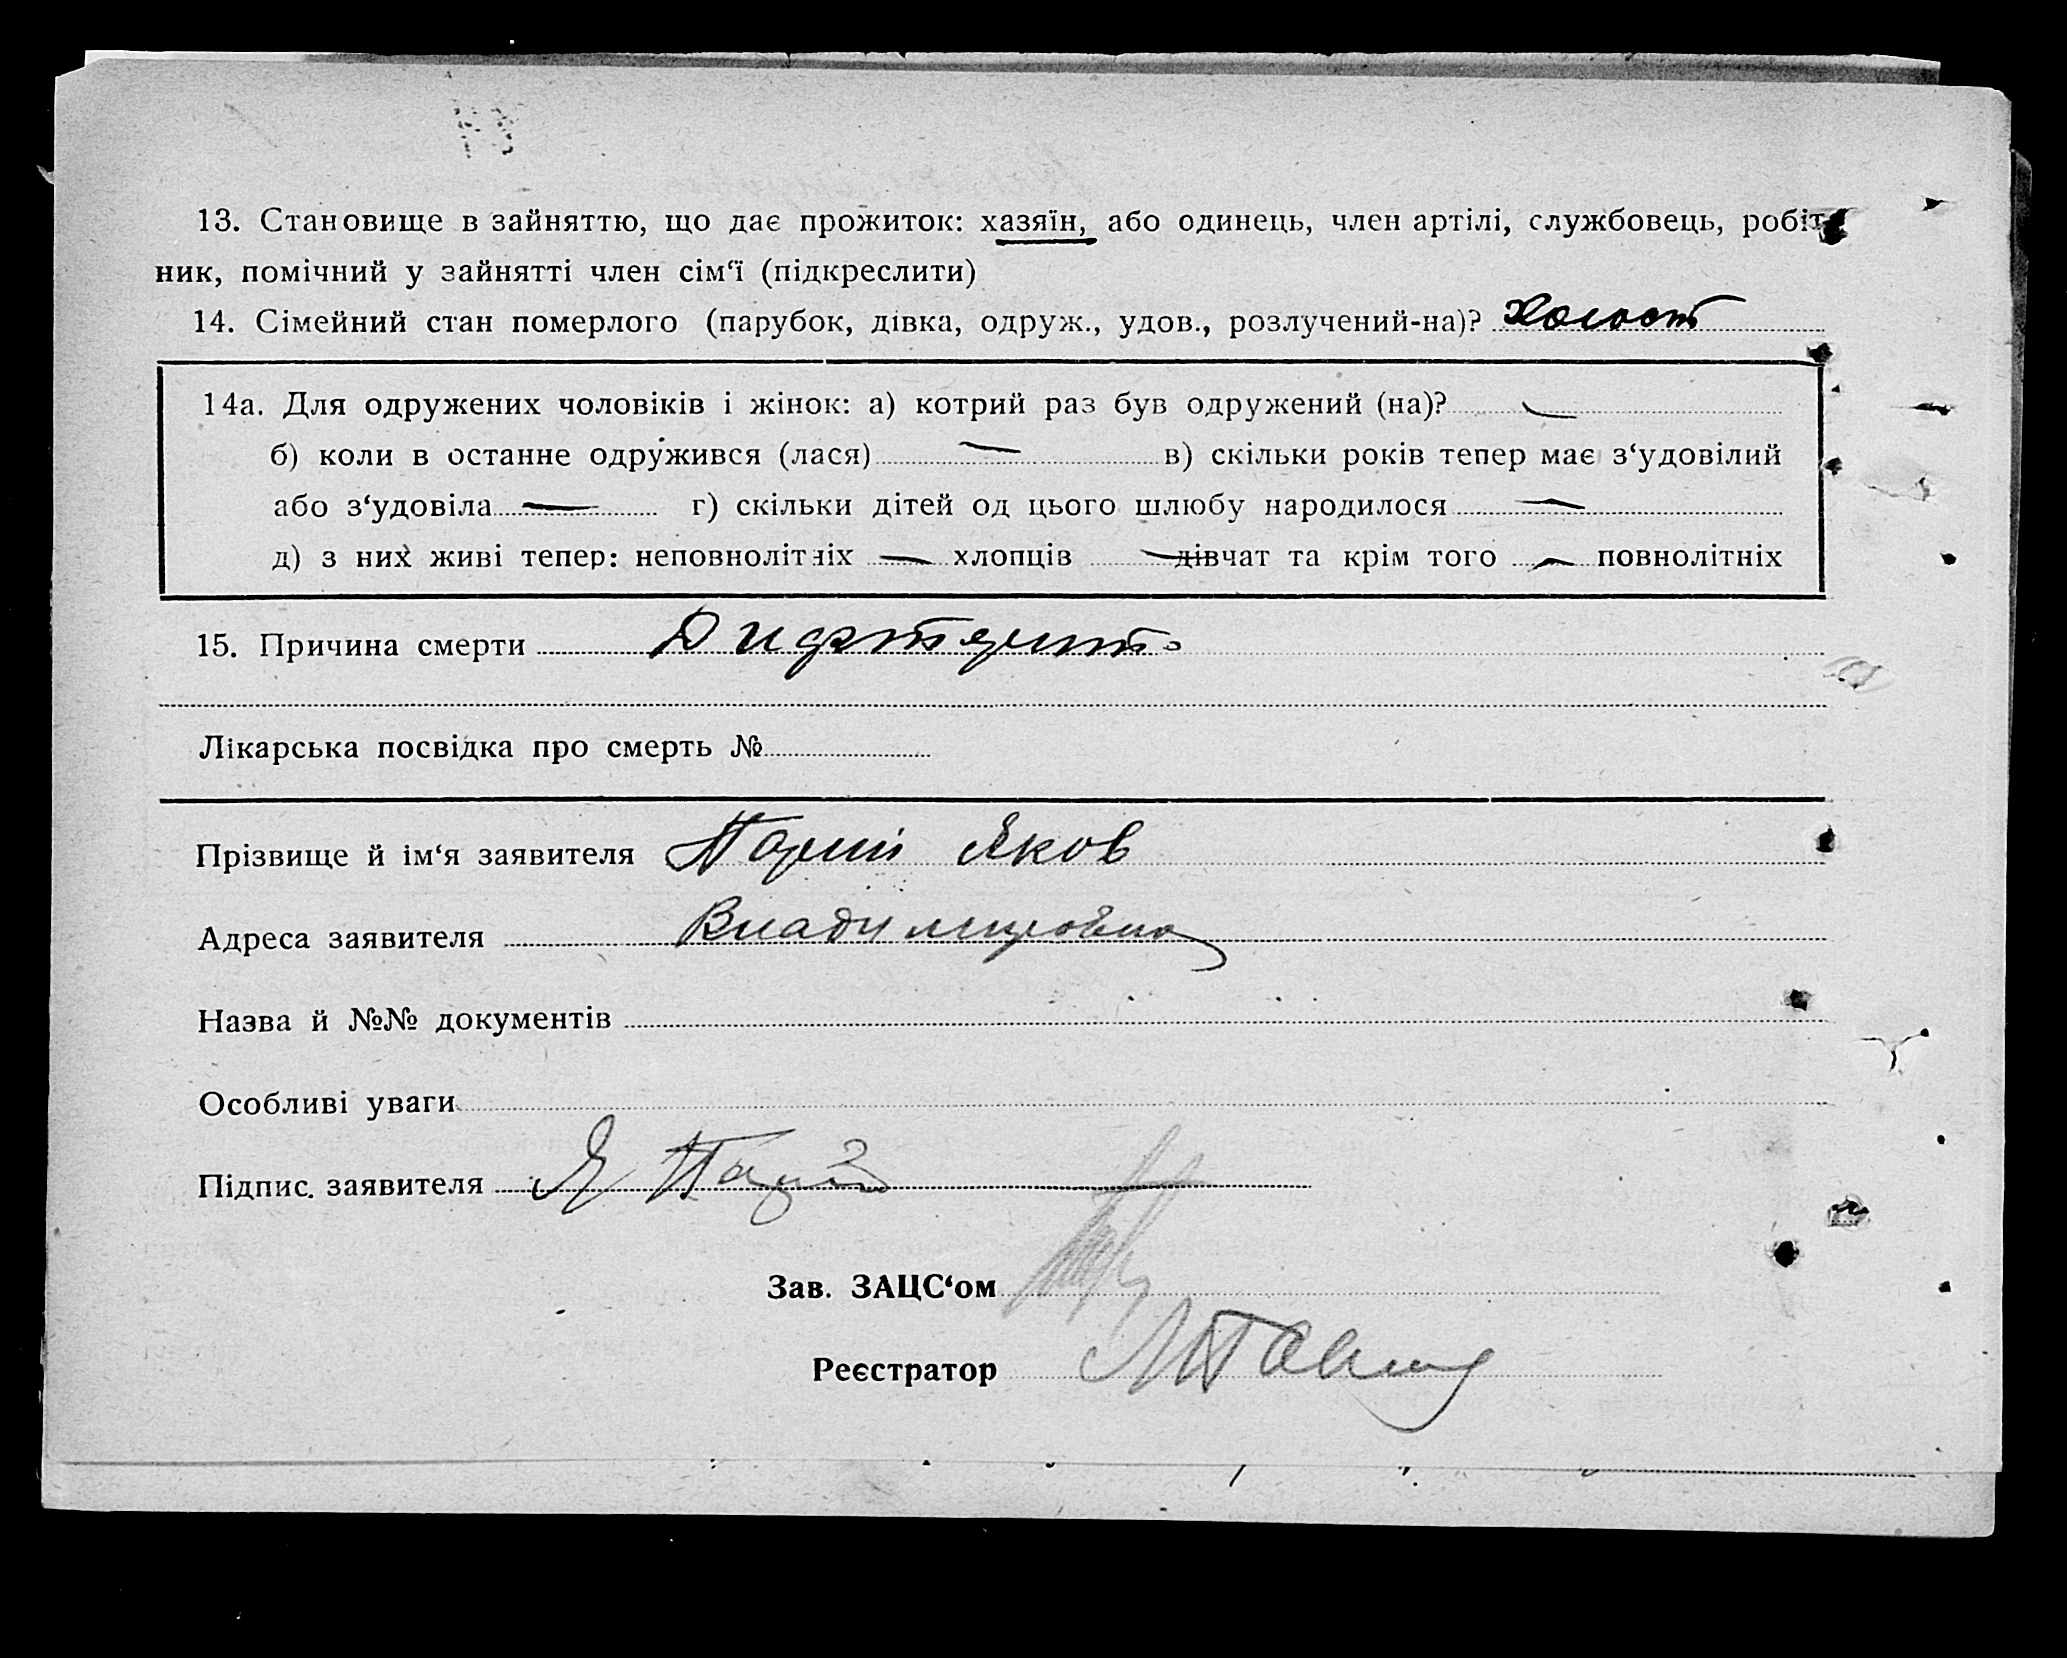 13. Становище в зайняттю, що дає прожиток: хазяїн, або одинець, член артілі, службовець, робіт-
ник, помічний у зайнятті член сім‘ї (підкреслити)
14. Сімейний стан померлого (парубок, дівка, одруж., удов., розлучений-на)? Холост
14а. Для одружених чоловіків і жінок: а) котрий раз був одружений (на)? —
б) коли в останне одружився (лася) — в) скільки років тепер має з‘удовілий
або з‘удовіла — г) скільки дітей од цього шлюбу народилося —
д) з них живі тепер: неповнолітніх — хлопців — дівчат та крім того — повнолітніх
15. Причина смерти
Лікарська посвідка про смерть №
Прізвище й ім‘я заявителя Парий Яков
Адреса заявителя Владимировка
Назва й №№ документів
Особливі уваги
Підпис. заявителя Я Парий
Зав. ЗАЦС‘ом
Реєстратор